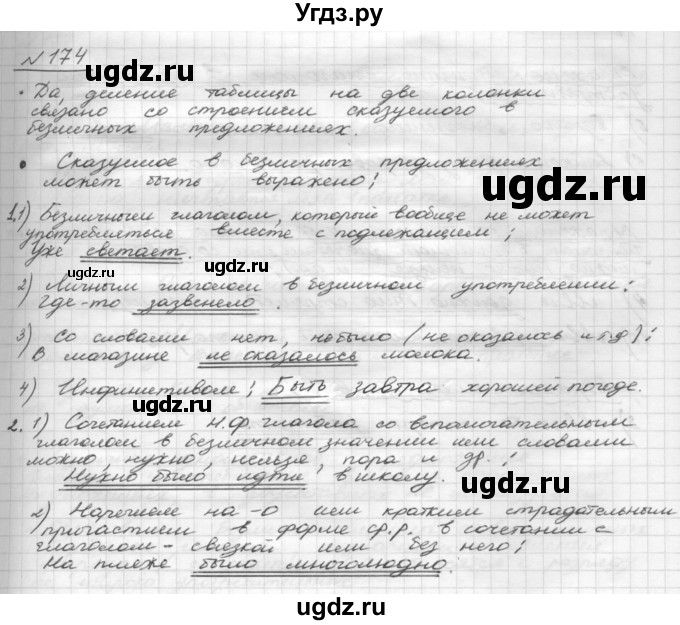 Угдз.ру
№ 174
ugdz.ru
• Да, деление таблицы на две колонки
связано со строением сказуемого в
безличных предложениях.
ugdz.ru
• Сказуемое в безличных предложениях
может быть выражено:
ugdz.ru
1.1) Безличным глаголом, который вообще не может
употребляться вместе с подлежащим;
Уже светает.
ugdz.ru
2) Личным глаголом в безличном употреблении:
Где-то зазвенело.
ugdz.ru
3) Со словами нет, не было (не оказалось и т.д):
В магазине не оказалось молока.
ugdz.ru
4) Инфинитивом: Быть завтра хорошей погоде.
ugdz.ru
2. 1) Сочетанием н.ф. глагола со вспомогательным
глаголом в безличном значении или словами
можно, нужно, нельзя, пора и др.:
ugdz.ru
Нужно было идти в школу.
ugdz.ru
2) Наречием на -о или кратким страдательным
причастием в форме ср.р. в сочетании с
глаголом - связкой или без него:
ugdz.ru
На пляже было многолюдно.
ugdz.ru
ugdz.ru